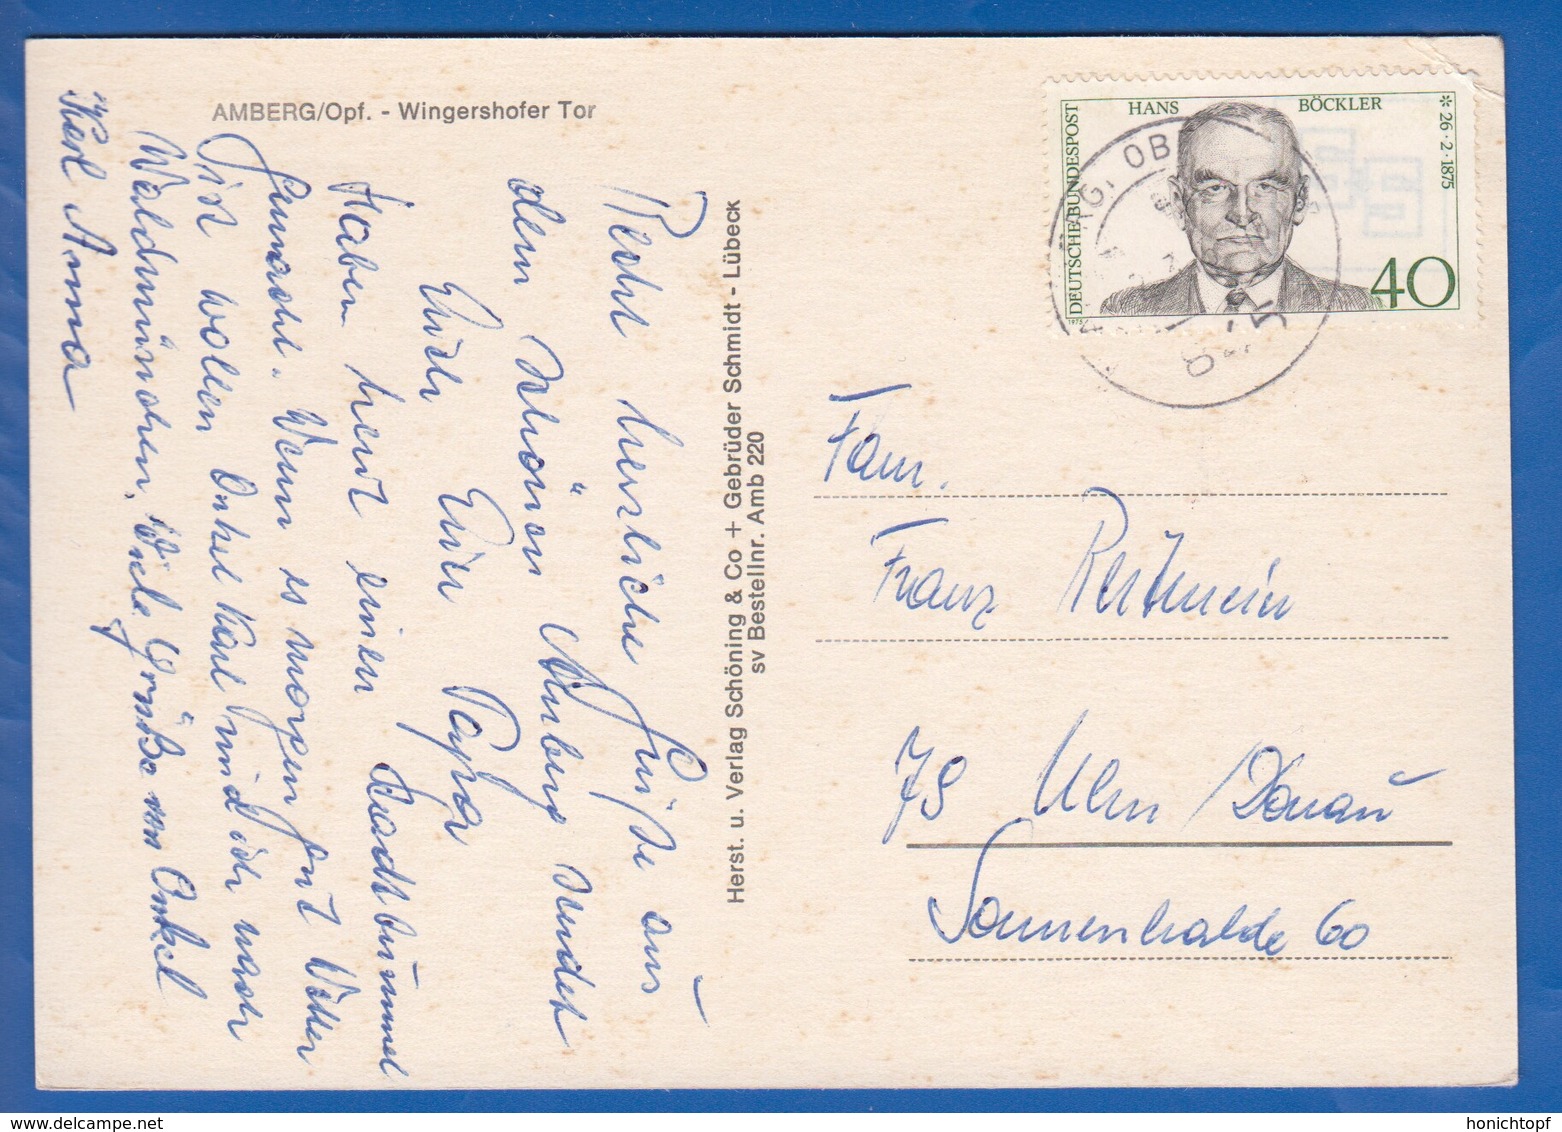 AMBERG/Opf. - Wingershofer Tor
Recht herzliche Grüße aus
dem schönen Amberg sendet
Euch Euer Papa
Haben heut einen Stadtbummel
gemacht. Wenn es morgen gut Wetter
ist wollen Onkel Karl und ich nach
Waldmünchen. Viele Grüße von Onkel
Karl Anna
Herst. u. Verlag Schöning & Co + Gebrüder Schmidt - Lübeck
sv Bestellnr. Amb 220
DEUTSCHE BUNDESPOST
HANS BÖCKLER
* 26·2·1875
40
1975
Fam.
Franz
79 Ulm/Donau
Sonnenhalde 60
honichtopf
delcampe.net